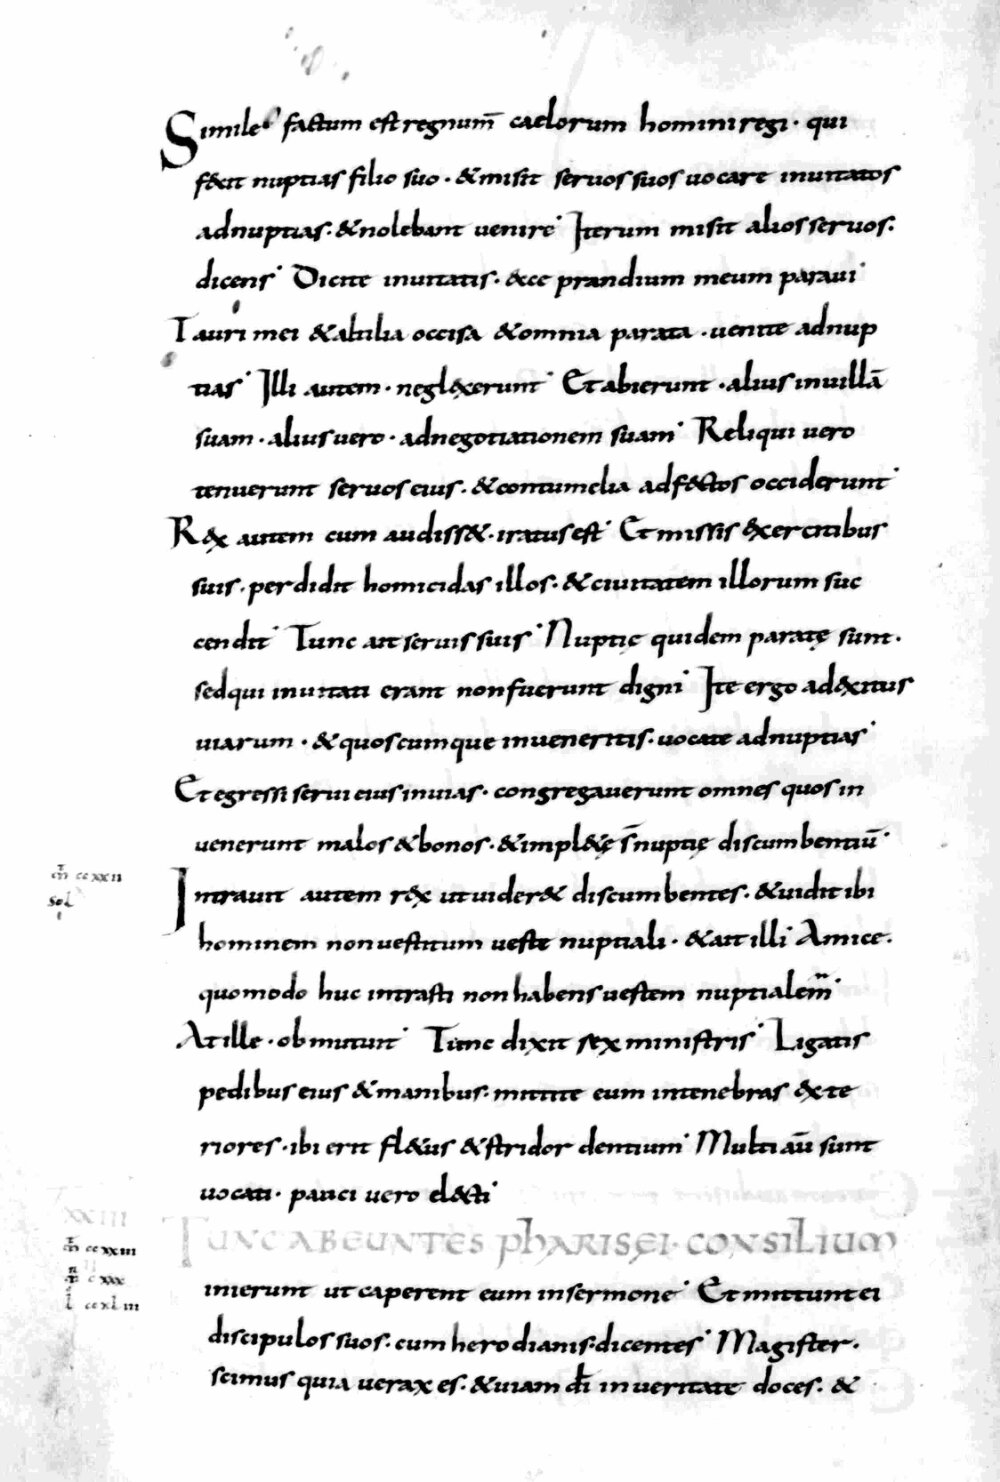 Simile factum est regnum̄ caelorum homini regi · qui
fecit nuptias filio suo · & misit seruos suos uocare inuitatos
ad nuptias · & nolebant uenire · Iterum misit alios seruos ·
dicens · Dicite inuitatis · ecce prandium meum paraui ·
Tauri mei & altilia occisa & omnia parata · uenite ad nup
tias · Illi autem · neglexerunt · Et abierunt · alius in uillā
suam · alius uero · ad negotiationem suam · Reliqui uero
tenuerunt seruos eius · & contumelia adfectos occiderunt ·
Rex autem cum audisset · iratus est · Et missis exercitibus
suis · perdidit homicidas illos · & ciuitatem illorum suc
cendit · Tunc ait seruis suis · Nuptię quidem paratę sunt ·
sed qui inuitati erant non fuerunt digni · Ite ergo ad exitus
uiarum · & quoscumque inueneritis · uocate ad nuptias ·
Et egressi serui eius in uias · congregauerunt omnes quos in
uenerunt malos & bonos · & impletę s̄ nuptię discumbentiū ·
m̄ cc xxii
Sol
Intrauit autem rex ut uideret discumbentes · & uidit ibi
hominem non uestitum ueste nuptiali · & ait illi Amice ·
quomodo huc intrasti non habens uestem nuptialem ·
At ille · obmutuit · Tunc dixit rex ministris · Ligatis
pedibus eius & manibus · mittite eum in tenebras exte
riores · ibi erit fletus & stridor dentium · Multi aū sunt
uocati · pauci uero electi ·
XXIII
TUNC ABEUNTES PhARISEI · CONSILIUM
m̄ cc xxiii
m̄ c xxx
l cc xl iii
inierunt ut caperent eum in sermone · Et mittunt ei
discipulos suos · cum herodianis · dicentes · Magister ·
scimus quia uerax es · & uiam dī in ueritate doces · &